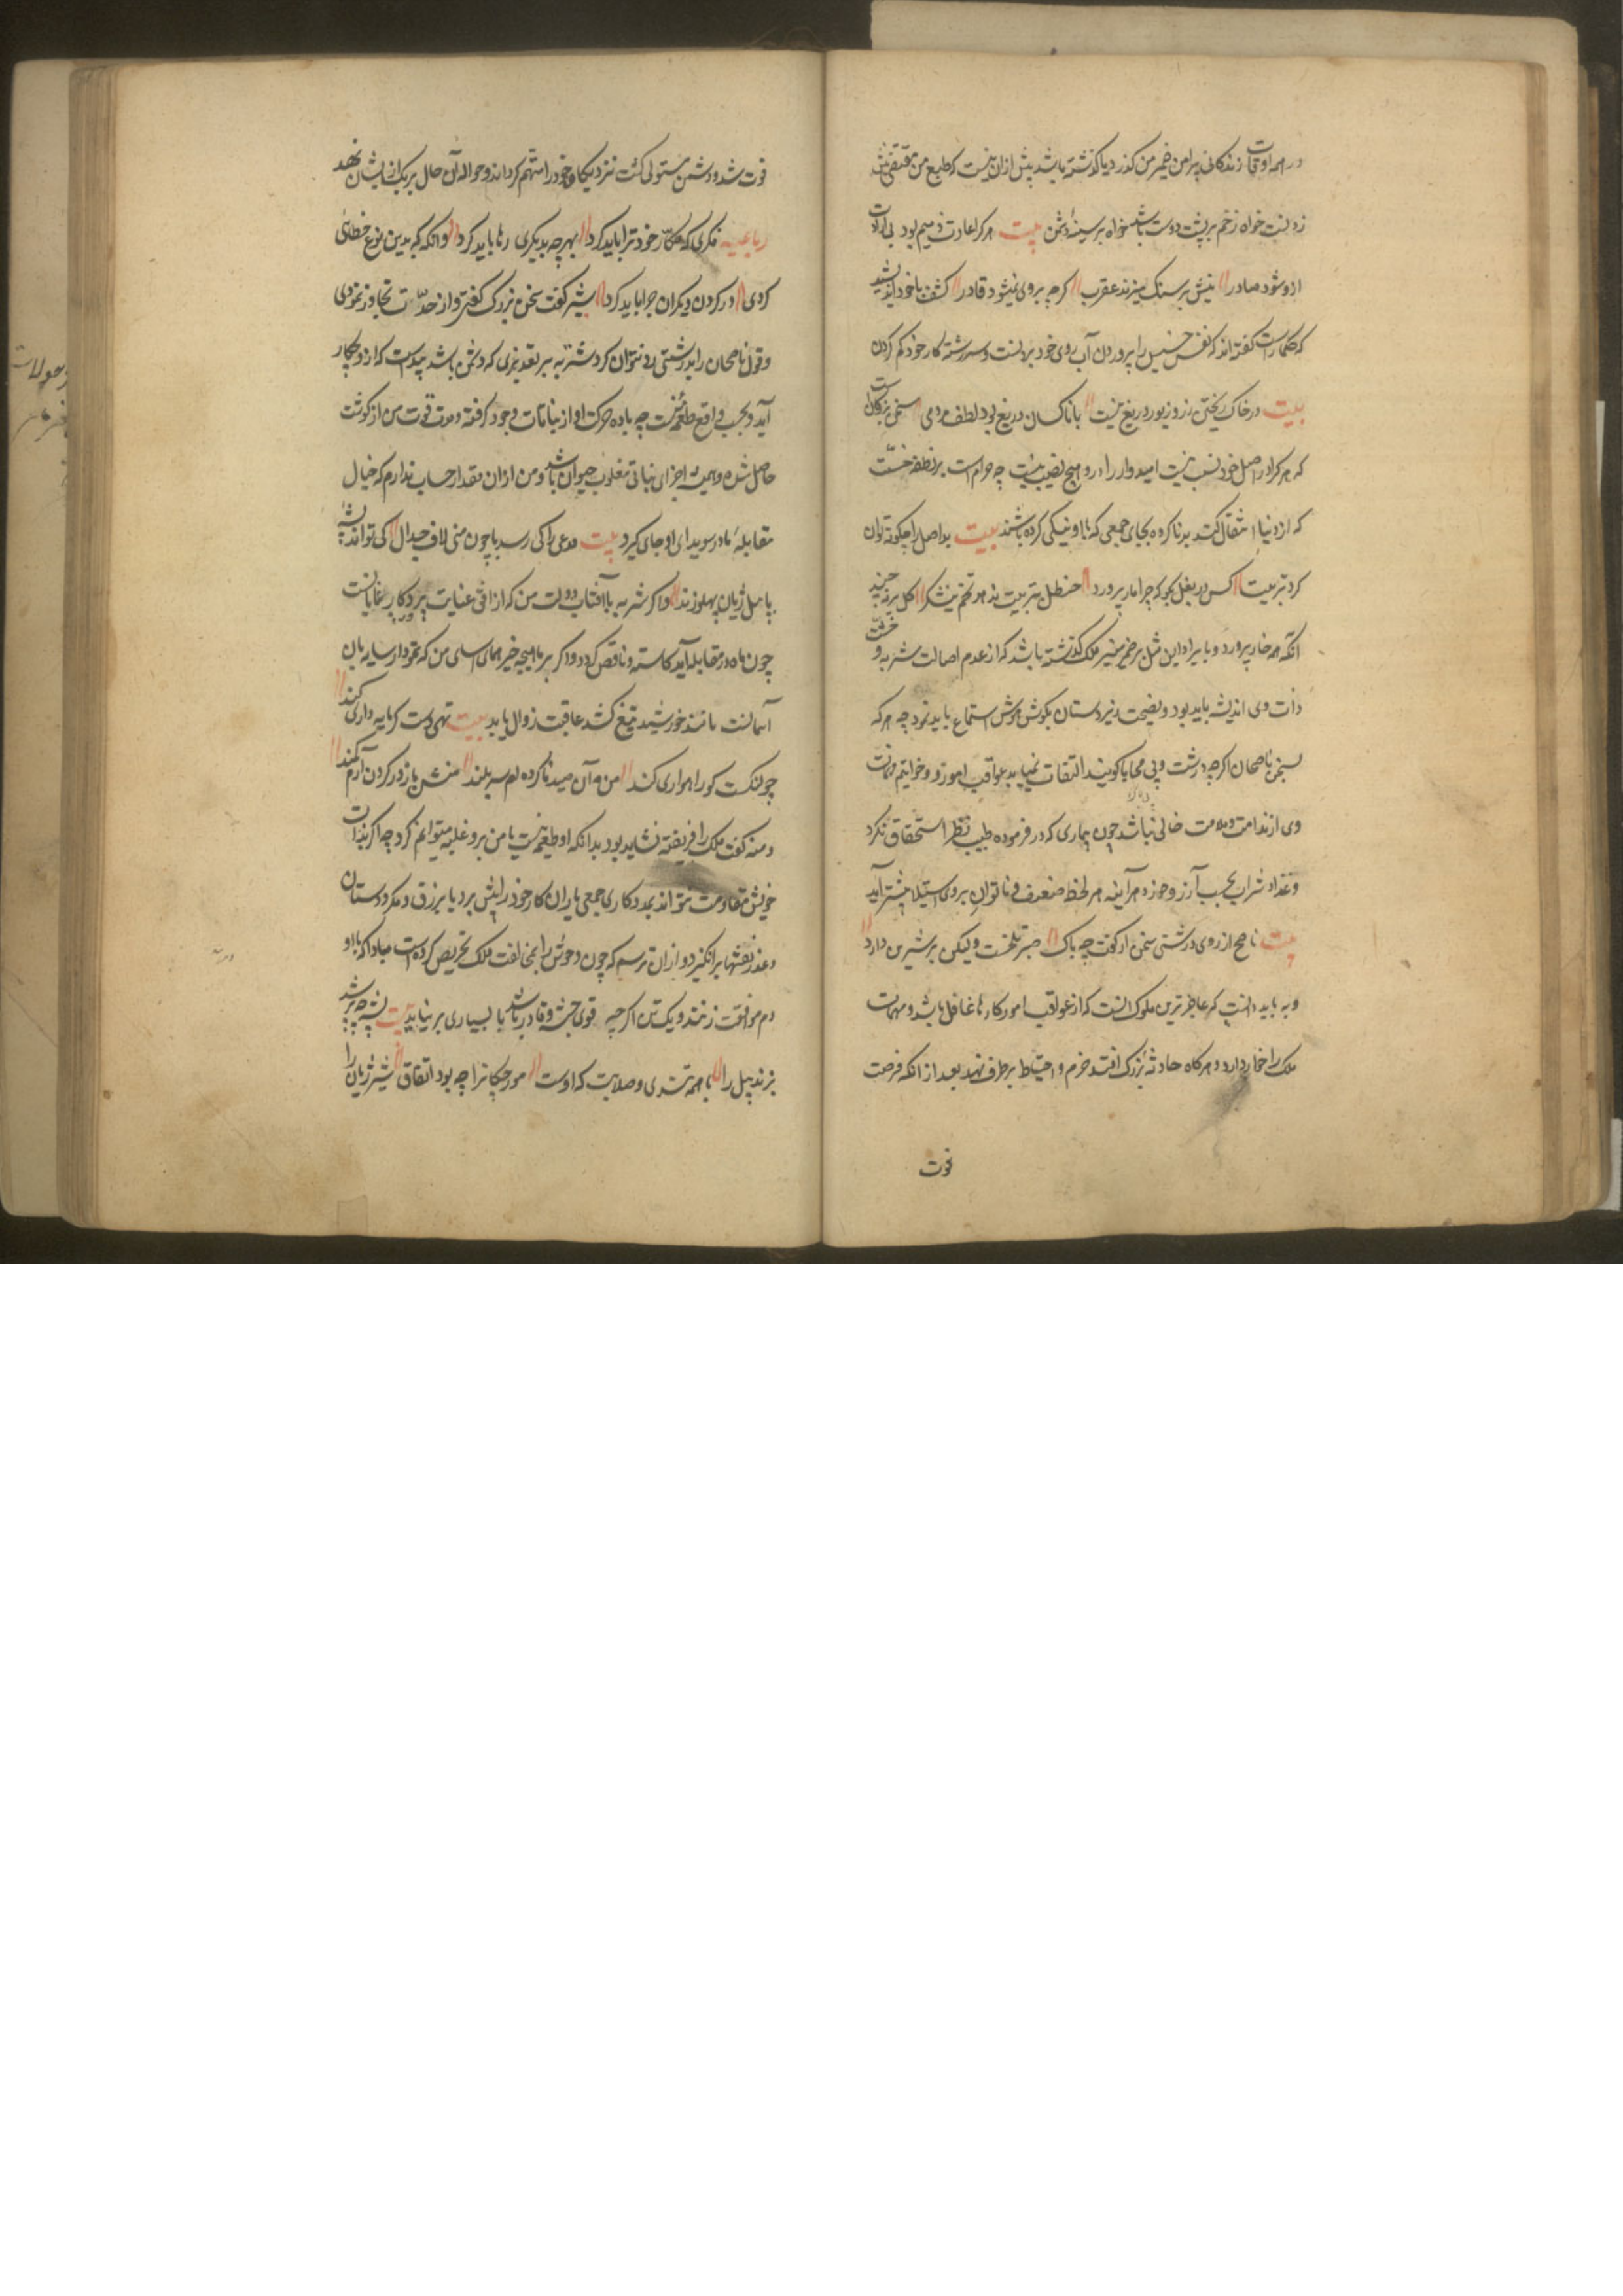 در همه اوقات زندکانی پیرامن ضمیر من کذر دیا کذشته باشد پیش ازان نیست که طبع من مقتضی نیش
زدنست خواه زخم بر پشت دوست باشد خواه بر سینهٔ دشمن بیت هر کرا عادت ذمیم بود بی ارادت
ازو شود صادر نیش بر سنک میزند عقرب کرچه بروی نمیشود قادر کشف با خود اندیشید
که حکما راست کفته اند که نفس خسیس را پروردن آب روی خود بردنست و سر رشته کار خود کم کردن
بیت در خاک ریختن زر و زیور دریغ نیست با ناکسان دریغ بود لطف مردمی سخن بزرکان است
که هر کرا در اصل خود نسب نیست امیدوار را درو هیچ نصیب نیست چه حرام است بر نطفه خسّت
که از دنیا انتقال کند بد ناکرده بجای جمعی که با او نیکی کرده باشند بیت بد اصل را چکونه توان
کرد تربیت کس در بغل بکو که چرا مار پرورد حنظل بتربیت ندهد تخم نیشکر کل بر نچیند
آنکه همه خار پرورد و با یراد این مثل بر ضمیر منیر ملک کذشته باشد که از عدم اصالت شتربه و خسّت
ذات وی اندیشه باید بود و نصیحت زیردستان بکوش هوش استماع باید نمود چه هر که
بسخن ناصحان اکرچه درشت و بی محابا کویند التفات ننماید عواقب امور و خواتیم مهمات
وی از ندامت و ملامت خالی نباشد چون بیماری که در فرموده طبیب بنظر استحقاق نکرد
و غذا و شراب بحسب آرزو خورد هر آینه هر لحظه ضعف و ناتوانی بروی استیلا بیشتر آید
بیت ناصح از روی درشتی سخن ار کفت چه باک صبر تلخست ولیکن بر شیرین دارد
و بباید دانست که عاجزترین ملوک آنست که از عواقب امور کارها غافل باشد و مهمات
ملک را خوار دارد و هر کاه حادثه بزرک افتد حزم و احتیاط بر طرف نهد بعد از انکه فرصت
فوت
فوت شد و دشمن مستولی کشت نزدیکان خود را متهم کرداند و حواله آن حال بر یک از ایشان نهد
رباعیه فکری که همکار خود ترا باید کرد بهر چه بدیکری رها باید کرد وانکه که بدین نوع خطائی
کردی در کردن دیکران چرا باید کرد شیر کفت سخن بزرک کفتی و از حدّ تجاوز نمودی
و قول ناصحان را بدرشتی رد نتوان کرد شتربه بر تقدیری که دشمن باشد پیداست که ازو چکار
آید و بحسب واقع طعمه منست چه ماده حرکت او از نباتات وجود کرفته و مدد قوت من از کوشت
حاصل شده و همیشه اجزای نباتی مغلوب حیوان باشد و من ازان مقدار حساب ندارم که خیال
مقابله ما در سویدای او جای کیرد بیت مدعی را کی رسد با چون منی لاف جدال کی تواند پشه
با پیل ژیان پهلو زند واکر شتربه با آفتاب دولت من که از افق عنایت پروردکار نمایانست
چون ماه در مقابله آید کاسته و ناقص کردد واکر بر ماهچه خیر همای آسای من که نمودار سایه بان
آسمانست مانند خورشید تیغ کشد عاقبت زوال یابد بیت تهی دست کر مایه داری کند
چو لنکست کو راهواری کند من آن صید ناکرده ام سر بلند منش باز در کردن آرم کمند
دمنه کفت ملک را فریفته نشاید بود بدانکه او طعمه منست با من برو غلبه میتوانم کرد چه اکر بذات
خویش مقاومت نتواند بمددکاری جمعی یاران کار خود را پیش برد یا بزرق و مکر و دستان
و غدر نقشها برانکیزد و ازان ترسم که چون وحوش را بمخالفت ملک تحریص کرده است مبادا که با او
دم موافقت زنند و یک تن اکرچه قوی جثه و قادر باشد با بسیاری بر نیاید بیت پشه چو پر شد
بزند پیل را با همه تندی و صلابت که اوست مورچکانرا چو بود اتفاق شیر ژیان را